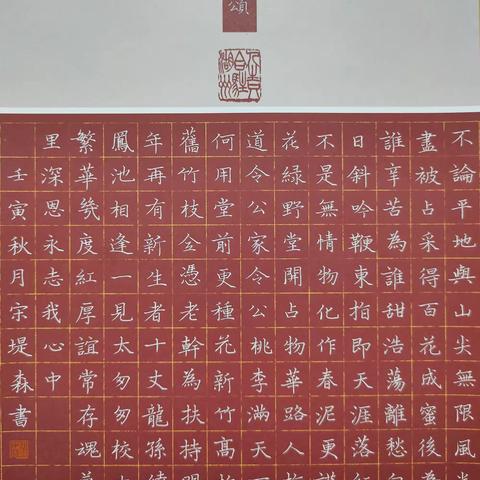 頌
不論平地與山尖無限風光
盡被占采得百花成蜜後為
誰辛苦為誰甜浩蕩離愁白
日斜吟鞭東指即天涯落紅
不是無情物化作春泥更護
花綠野堂開占物華路人指
道令公家令公桃李滿天下
何用堂前更種花新竹高於
舊竹枝全憑老幹為扶持明
年再有新生者十丈龍孫繞
鳳池相逢一見太匆匆校
繁華幾度紅厚誼常存魂夢
里深恩永志我心中
壬寅秋月宗堤森書